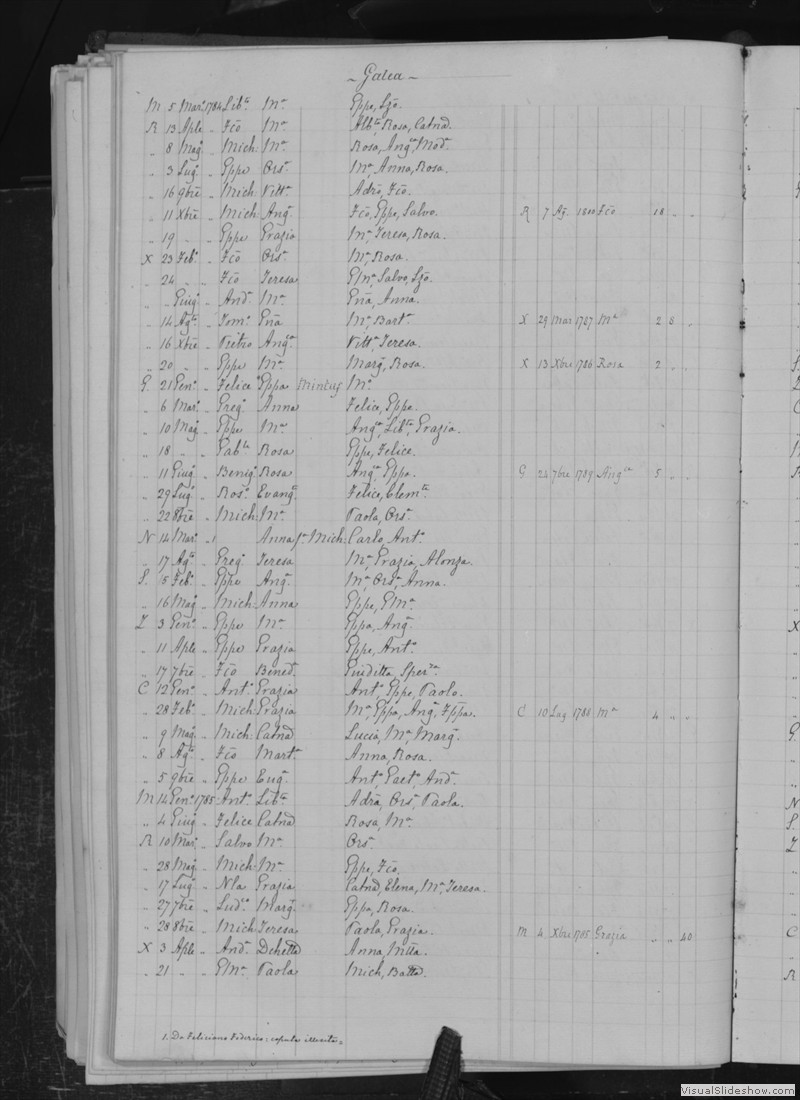 ~ Galea ~
M 5 Marº 1784 Libᵗᵃ Mᵃ Eppe, Lzo.
R 13 Aple „ Fcõ Mᵃ Albᵗᵃ Rosa, Catnã.
„ 8 Magº „ Mich: Mᵃ Rosa, Angᶜᵃ, Modᵃ.
„ 3 Lugº „ Eppe Orsª Mᵃ, Anna, Rosa.
„ 16 9bre „ Mich: Vittª Adrõ, Fcõ.
„ 11 Xbre „ Mich: Angª Fcõ, Eppe, Salvo. R 7 Agº 1800 Fcõ 18 „ „
„ 19 „ „ Eppe Grazia Mᵃ, Teresa, Rosa.
X 23 Febº „ Fcõ Orsª Mᵃ, Rosa.
„ 24 „ „ Fcõ Teresa E/Mˡ, Salvo, Lzo.
„ „ Giugº „ Andª Mᵃ Gña, Anna.
„ 14 Agᵗᵒ „ Tomº Gña Mᵃ, Bartº. X 29 Mar 1787 Mᵃ 2 8 „
„ 16 Xbre „ Pietro Angª Vittª, Teresa.
„ 20 „ „ Eppe Mᵃ Margª, Rosa. X 13 Xbre 1786 Rosa 2 „ „
G. 21 Genº „ Felice Eppa Mintus Mᵃ
„ 6 Marº „ Gregº Anna Felice, Eppe.
„ 10 Magº „ Eppe Mᵃ Angᶜᵃ, Libᵗᵃ, Grazia.
„ 18 „ „ Gabˡᵉ Rosa Eppe, Felice.
„ 11 Giugº „ Benigº Rosa Angᶜᵃ, Eppa. G 24 7bre 1789 Angᶜᵃ 5 „ „
„ 29 Lugº „ Rosº Evangᵗᵃ Felice, Clemᵗᵉ.
„ 22 8bre „ Mich: Mᵃ Paola, Orsª.
N 14 Marº „ 1 Anna Mich: Carlo, Antº.
„ 17 Agᵗᵒ „ Gregº Teresa Mᵃ, Grazia, Alonza.
S. 15 Febº „ Eppe Angª Mᵃ, Orsª, Anna.
„ 16 Magº „ Mich: Anna Eppe, E/Mˡ.
Z 3 Genº „ Eppe Mᵃ Eppa, Angº
„ 11 Aple „ Eppe Grazia Eppe, Antº.
„ 17 7bre „ Fcõ Bened. Guiditta, Sperᶻᵃ.
C 12 Genº „ Antº Grazia Antª, Eppe, Paolo.
„ 28 Febº „ Mich: Grazia Mᵃ, Eppa, Angª, Fppa. C 10 Lug 1786 Mᵃ 4 „ „
„ 9 Magº „ Mich: Catnã Lucia, Mᵃ, Margª.
„ 8 Agᵗᵒ „ Fcõ Martª Anna, Rosa.
„ 5 9bre „ Eppe Eugª Antª, Gaetº, Andª.
M 14 Genº 1785 Antº Libᵗᵃ Adrã, Orsª, Paola.
„ 4 Giugº „ Felice Catnã Rosa, Mᵃ.
R 10 Marº „ Salvo Mᵃ Orsª
„ 28 Magº „ Mich: Mᵃ Eppe, Fcõ.
„ 17 Lugº „ Nla Grazia Catnã, Elena, Mᵃ, Teresa.
„ 27 7bre „ Ludᶜᵒ Margª Eppa, Rosa.
„ 28 8bre „ Mich: Teresa Paola, Grazia. M 4 Xbre 1785 Grazia „ „ 40
X 3 Aple „ Andª Dchetta Anna, Nttla.
„ 21 „ „ E/Mˡ Paola Mich, Batta.
1. Da Feliciano Federico: copula illecita.
VisualSlideshow.com